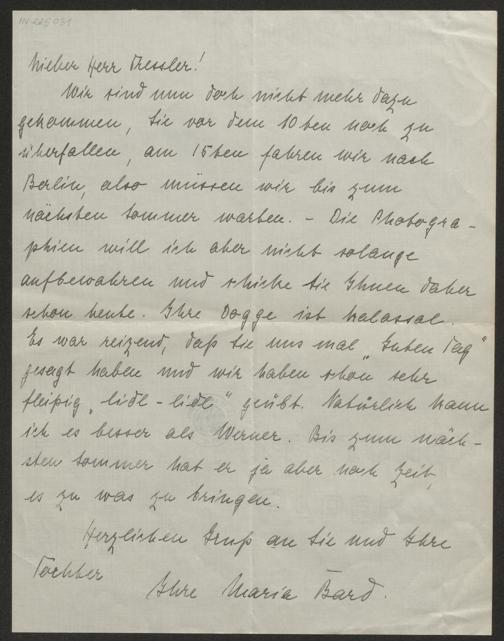 IN 225031
Lieber Herr Tressler!
Wir sind nun doch nicht mehr dazu
gekommen, Sie vor dem 10ten noch zu
überfallen, am 15ten fahren wir nach
Berlin, also müssen wir bis zum
nächsten Sommer warten. – Die Photogra-
phien will ich aber nicht solange
aufbewahren und schicke sie Ihnen daher
schon heute. Ihre Dogge ist kolossal.
Es war reizend, daß Sie uns mal „Guten Tag"
gesagt haben und wir haben schon sehr
fleißig „lidl-lidl" geübt. Natürlich kann
ich es besser als Werner. Bis zum näch-
sten Sommer hat er ja aber noch Zeit,
es zu was zu bringen.
Herzlichen Gruß an Sie und Ihre
Tochter
Ihre Maria Bard.